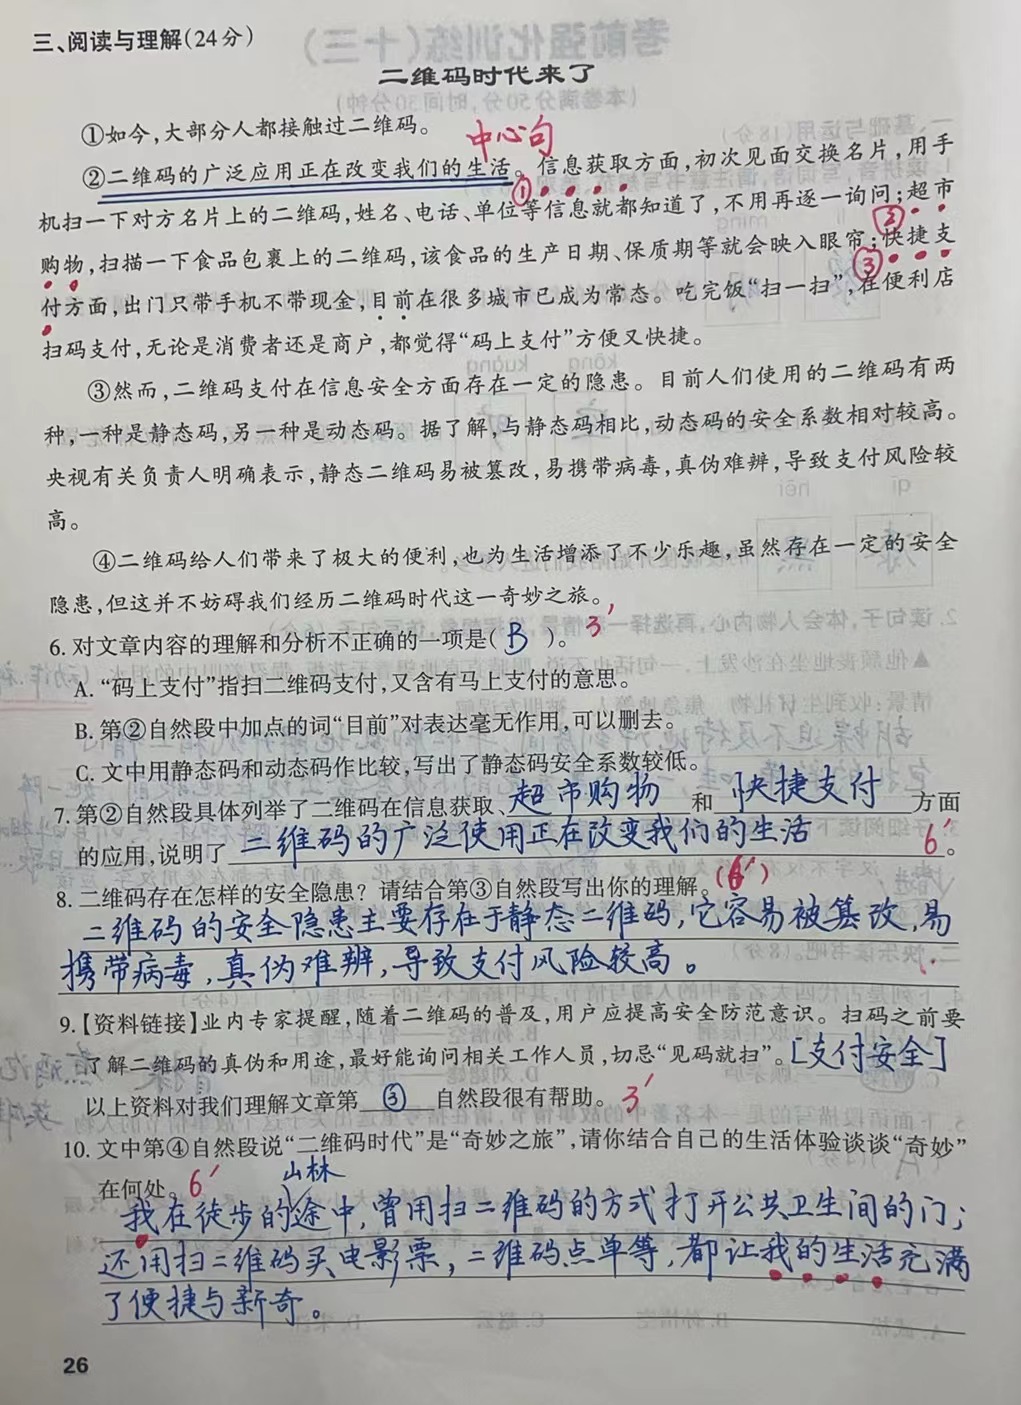 三、阅读与理解(24分)
二维码时代来了
①如今,大部分人都接触过二维码。
中心句
②二维码的广泛应用正在改变我们的生活。信息获取方面,初次见面交换名片,用手
①
机扫一下对方名片上的二维码,姓名、电话、单位等信息就都知道了,不用再逐一询问;超市
②
购物,扫描一下食品包裹上的二维码,该食品的生产日期、保质期等就会映入眼帘;快捷支
③
付方面,出门只带手机不带现金,目前在很多城市已成为常态。吃完饭“扫一扫”,在便利店
扫码支付,无论是消费者还是商户,都觉得“码上支付”方便又快捷。
③然而,二维码支付在信息安全方面存在一定的隐患。目前人们使用的二维码有两
种,一种是静态码,另一种是动态码。据了解,与静态码相比,动态码的安全系数相对较高。
央视有关负责人明确表示,静态二维码易被篡改,易携带病毒,真伪难辨,导致支付风险较
高。
④二维码给人们带来了极大的便利,也为生活增添了不少乐趣,虽然存在一定的安全
隐患,但这并不妨碍我们经历二维码时代这一奇妙之旅。
6. 对文章内容的理解和分析不正确的一项是( B )。 3'
A. “码上支付”指扫二维码支付,又含有马上支付的意思。
B. 第②自然段中加点的词“目前”对表达毫无作用,可以删去。
C. 文中用静态码和动态码作比较,写出了静态码安全系数较低。
7. 第②自然段具体列举了二维码在信息获取、超市购物 和 快捷支付 方面
的应用,说明了 二维码的广泛使用正在改变我们的生活 6' 。
8. 二维码存在怎样的安全隐患? 请结合第③自然段写出你的理解。(6')
二维码的安全隐患主要存在于静态二维码,它容易被篡改,易
携带病毒,真伪难辨,导致支付风险较高。
9.【资料链接】业内专家提醒,随着二维码的普及,用户应提高安全防范意识。扫码之前要
了解二维码的真伪和用途,最好能询问相关工作人员,切忌“见码就扫”。[支付安全]
以上资料对我们理解文章第 ③ 自然段很有帮助。 3'
10. 文中第④自然段说“二维码时代”是“奇妙之旅”,请你结合自己的生活体验谈谈“奇妙”
在何处。 6'
山林
我在徒步的途中,曾用扫二维码的方式打开公共卫生间的门;
还用扫二维码买电影票,二维码点单等,都让我的生活充满
了便捷与新奇。
26